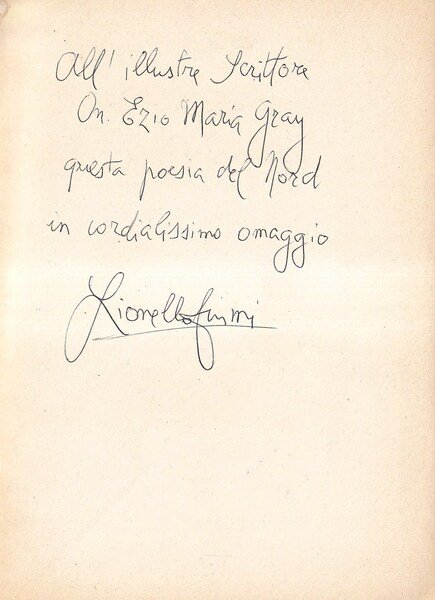 All' illustre Scrittore
On. Ezio Maria Gray
questa poesia del Nord
in cordialissimo omaggio
Lionello Fiumi